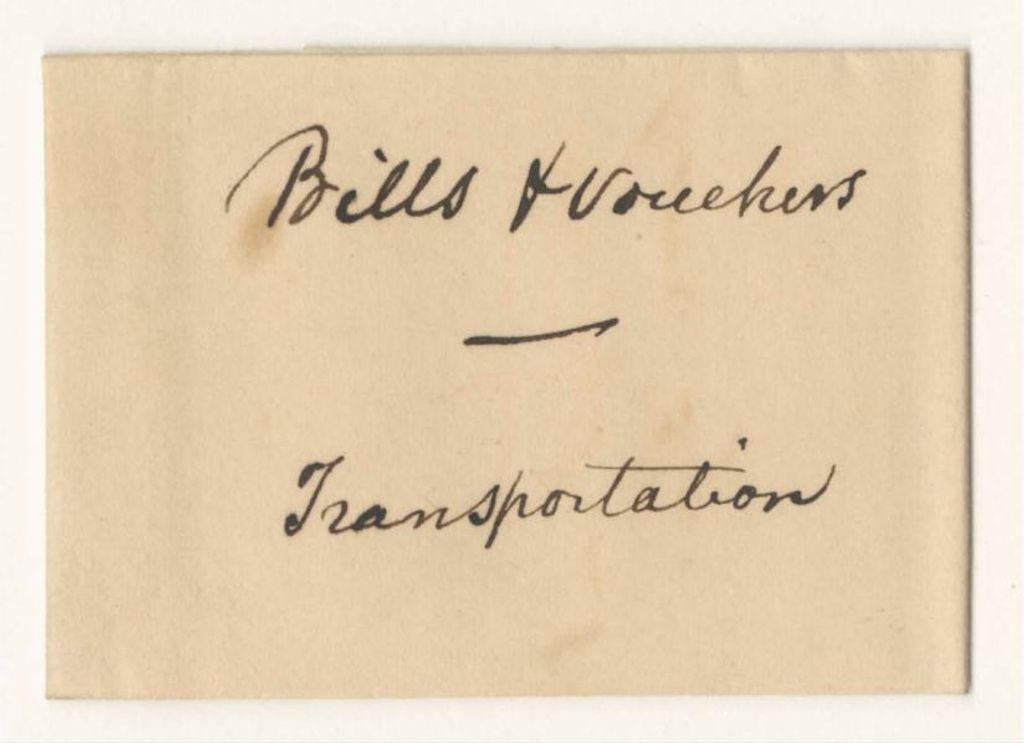 Bills & Vouchers
—
Transportation